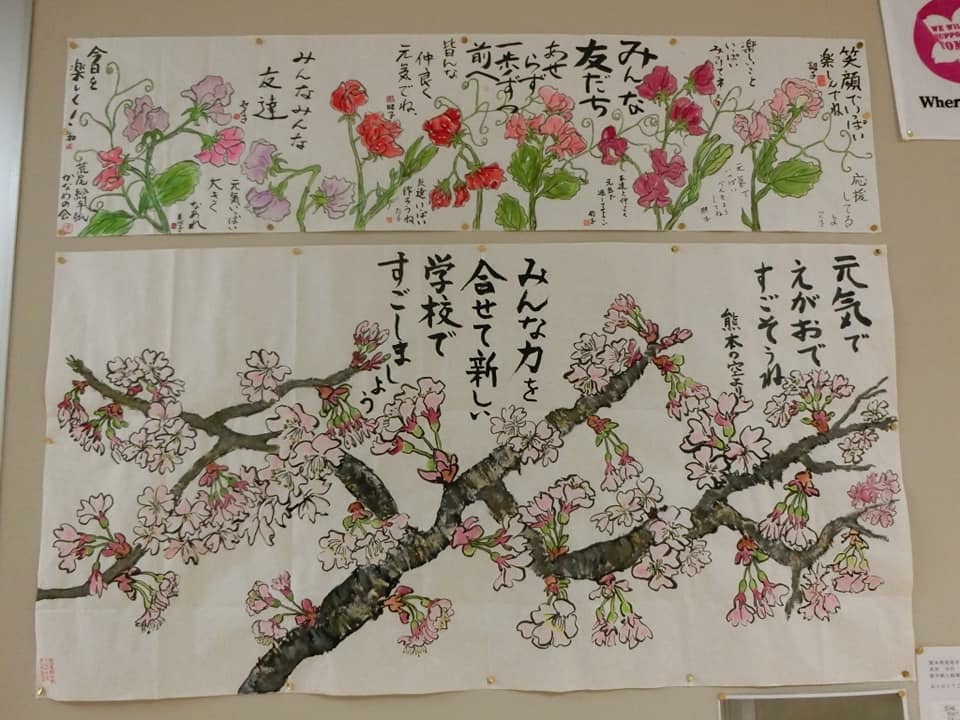 笑顔でいっぱい
楽しんでね
応援
してる
よ
楽しいこと
いっぱい
元気で
いっぱい
してね
みんな
友だち
あせ
らず
一歩ずつ
前へ
皆んな
仲良く
元気でね。
友達いっぱい
作ろうね
みんなみんな
友達
元気いっぱい
大きく
なあれ
今日も
楽しく!!
絵手紙
かなめの会
元気で
えがおで
すごそうね
熊本の空より
みんな力を
合せて新しい
学校で
すごしましょう
WE WILL
SUPPORT
Wher